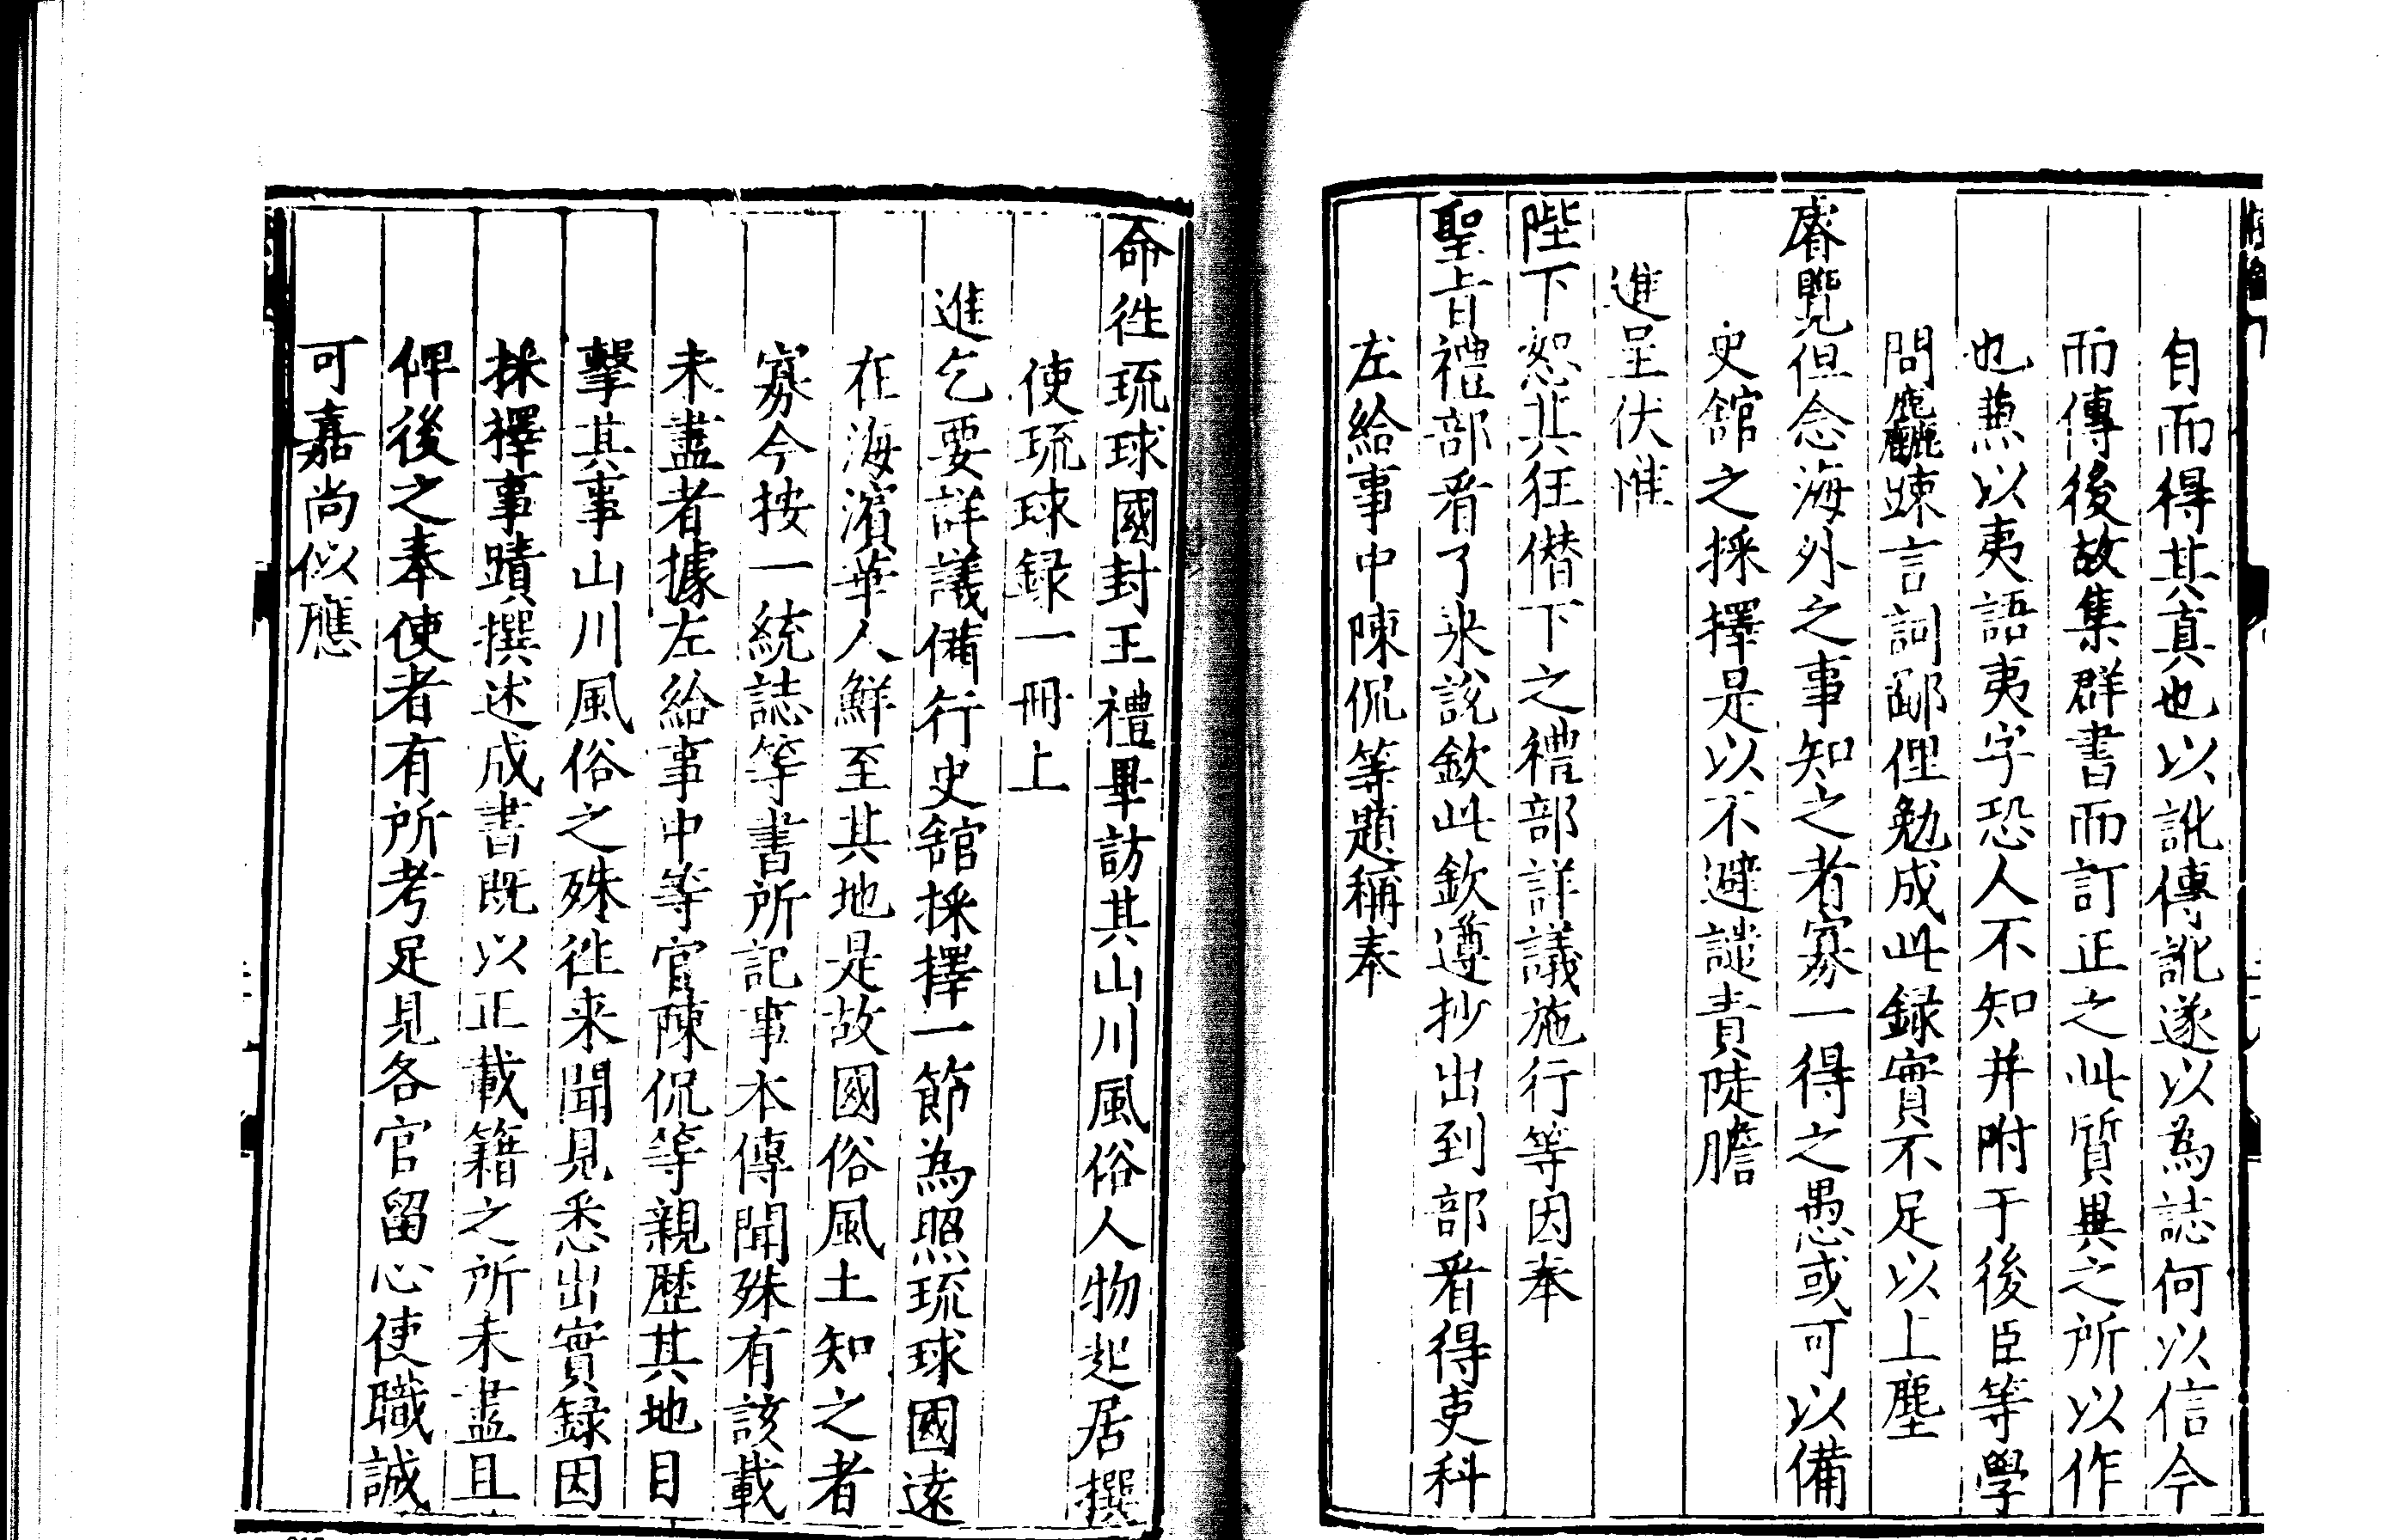 自而得其真也以訛傳訛遂以為誌何以信今
而傳後故集群書而訂正之此質異之所以作
也蕪以夷語夷字恐人不知并附于後臣等學
問麤踈言詞鄙俚勉成此録實不足以上塵
睿覽但念海外之事知之者寡一得之愚或可以備
史舘之採擇是以不避譴責陡膽
進呈伏惟
陛下恕其狂僭下之禮部詳議施行等因奉
聖旨禮部看了来說欽此欽遵抄出到部看得吏科
左給事中陳侃等題稱奉
命往琉球國封王禮畢訪其山川風俗人物起居撰
使琉球録一冊上
進乞要詳議備行史舘採擇一節為照琉球國遠
在海濱華人鮮至其地是故國俗風土知之者
寡今按一統誌等書所記事本傳聞殊有該載
未盡者據左給事中等官陳侃等親歷其地目
擊其事山川風俗之殊徃来聞見悉出實録因
採擇事蹟撰述成書既以正載籍之所未盡且
俾後之奉使者有所考足見各官留心使職誠
可嘉尚似應